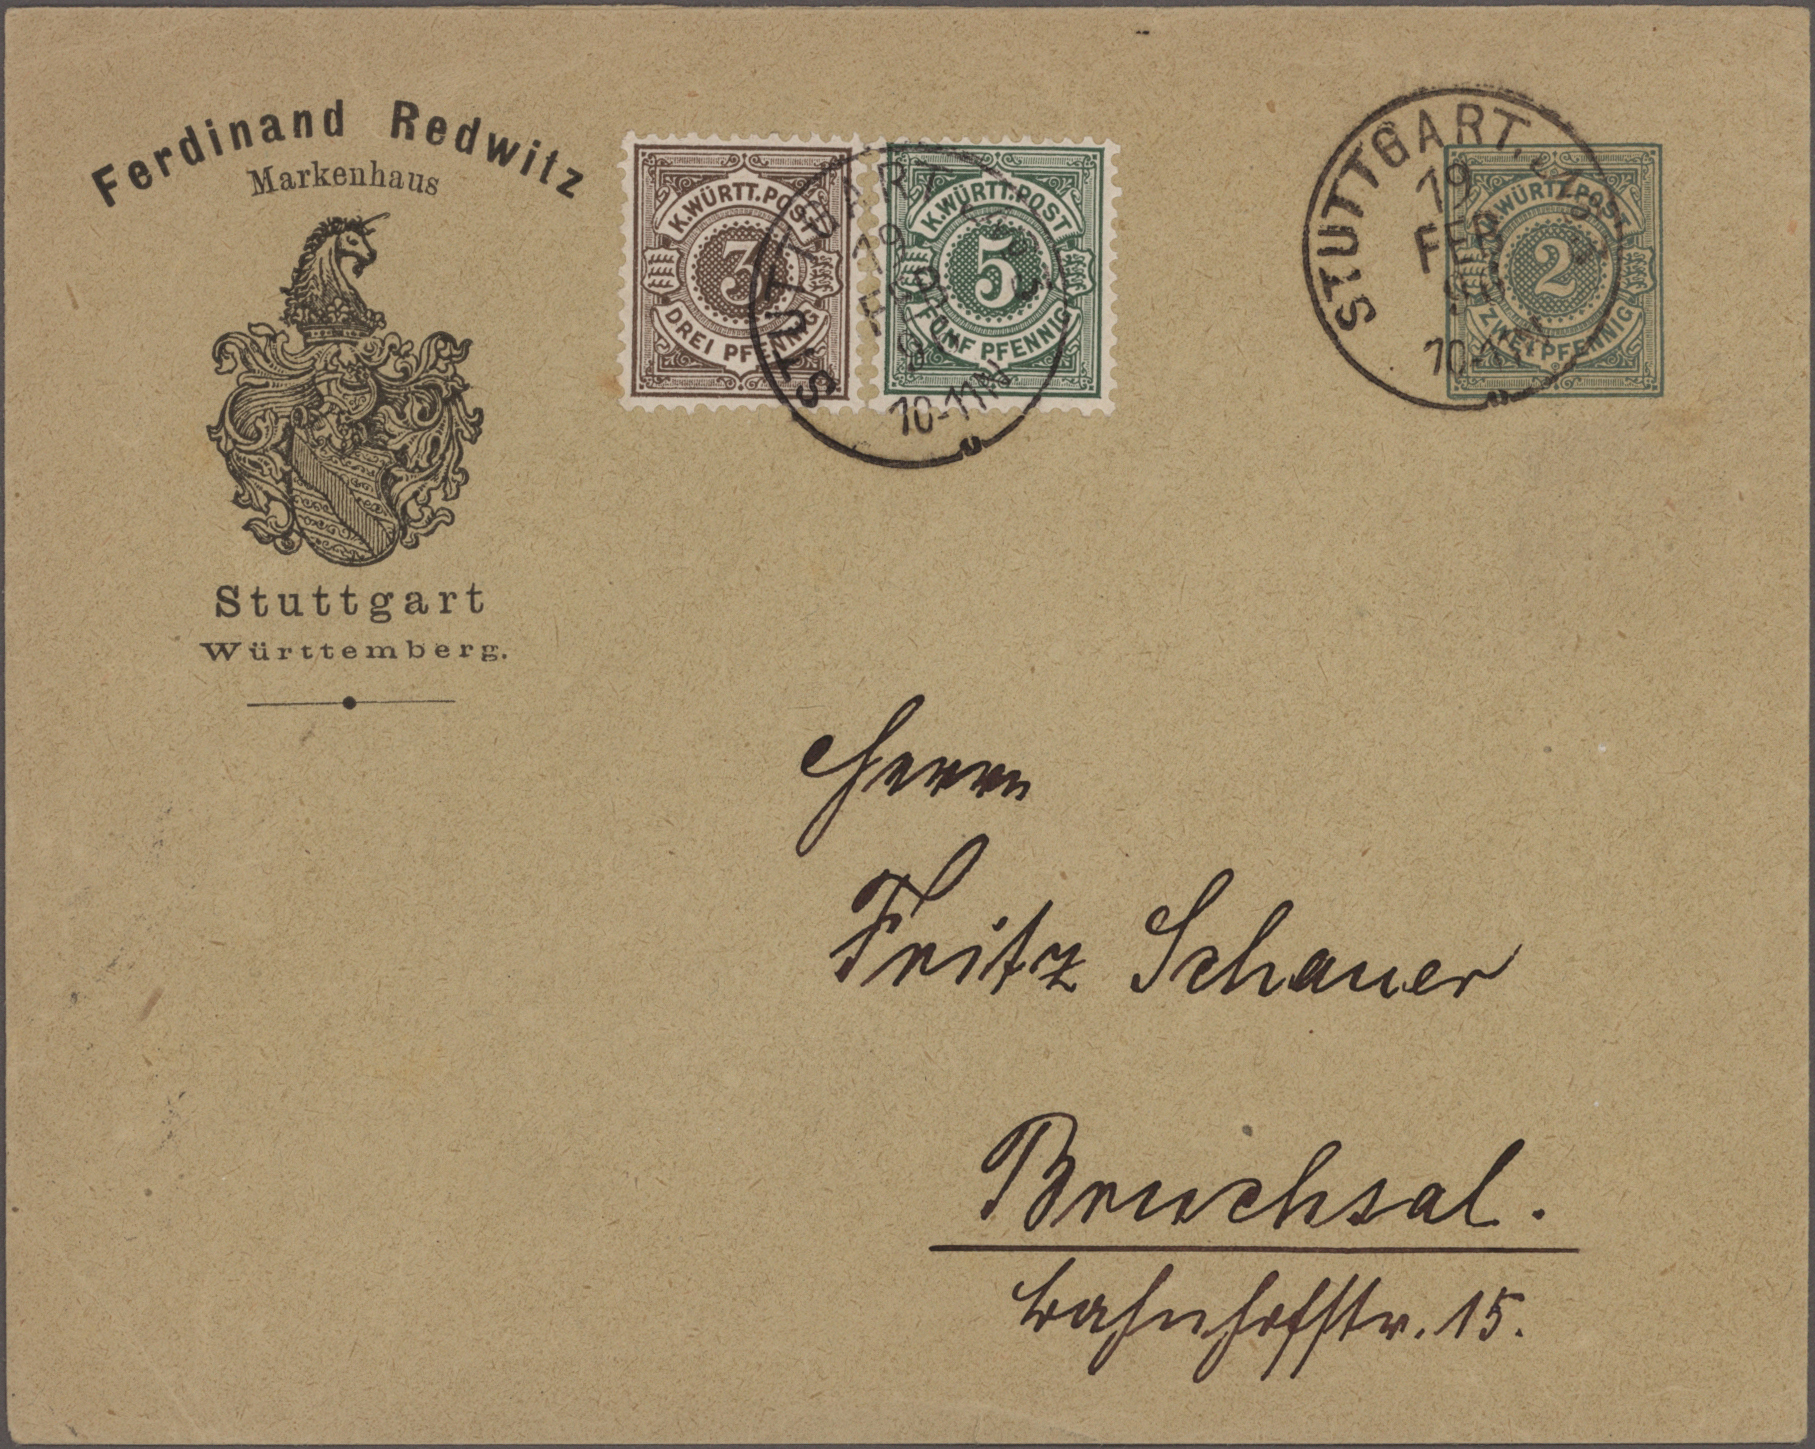 Ferdinand Redwitz
Markenhaus
Stuttgart
Württemberg.
K.WÜRTT.POST
3
DREI PFENNIG
K.WÜRTT.POST
5
FÜNF PFENNIG
STUTTGART
19
FEB
10-11N
K.WÜRTT.POST
2
ZWEI PFENNIG
STUTTGART.
19
FEB
10-11N
Herrn
Fritz Schauer
Bruchsal.
Bahnhofstr. 15.